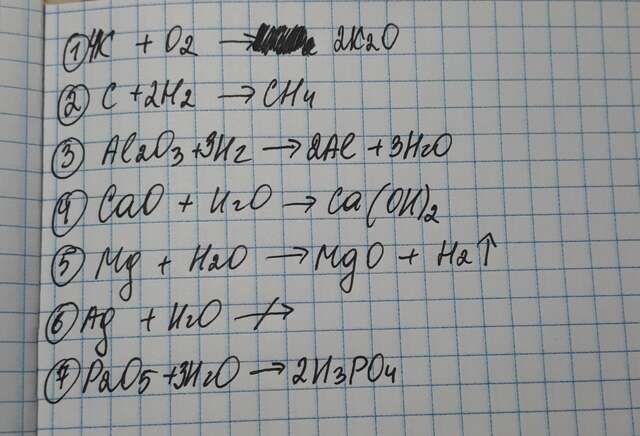 ① 4K + O2 → 2K2O
② C + 2H2 → CH4
③ Al2O3 + 3H2 → 2Al + 3H2O
④ CaO + H2O → Ca(OH)2
⑤ Mg + H2O → MgO + H2↑
⑥ Ag + H2O ↛
⑦ P2O5 + 3H2O → 2H3PO4